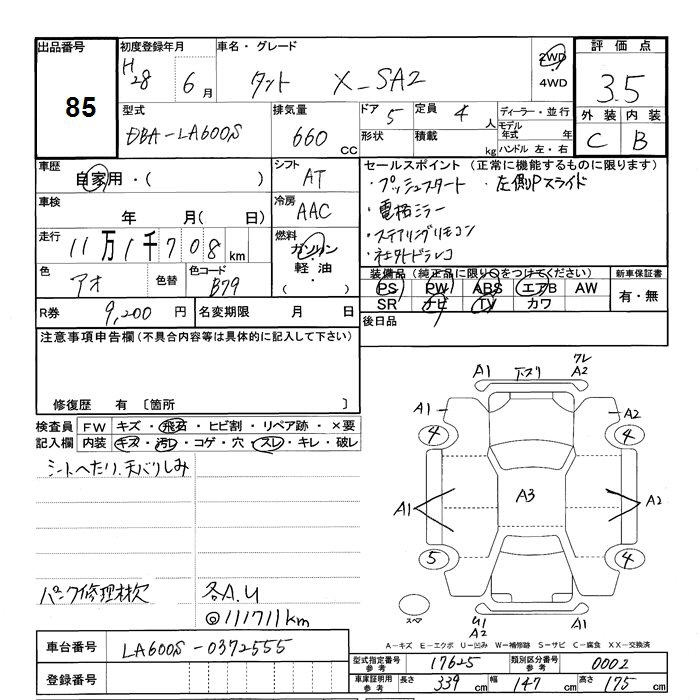 出品番号 初度登録年月 車名・グレード 評価点
85 H28 6月 タント X_SA2 2WD 4WD 3.5
型式 排気量 ドア 5 定員 4人 ディーラー・並行 外装 内装
DBA-LA600S 660cc 形状 積載 kg モデル年式 年 ハンドル 左・右 C B
車歴 自家用・( ) シフト AT
セールスポイント (正常に機能するものに限ります)
・プッシュスタート ・左側Pスライド
車検 年 月( 日) 冷房 AAC
・電格ミラー
走行 11万1千708km 燃料 ガソリン・軽油・( )
・ステアリングリモコン
・社外ドラレコ
色 アオ 色替 色コード B79
装備品(純正品に限り○をつけてください) 新車保証書
PS PW ABS エアB AW 有・無
SR ナビ TV カワ
R券 9,200円 名変期限 月 日
後日品
注意事項申告欄(不具合内容等は具体的に記入して下さい)
修復歴 有 〔箇所 〕
検査員記入欄 FW キズ・飛石・ヒビ割・リペア跡・×要
内装 キズ・汚レ・コゲ・穴・スレ・キレ・破レ
シートへたり、天バリしみ
パンク修理材欠 各A.U
◎111711km
A1 下スリ ワレ A2
A1 A2
4 4
A1 A3 A2
5 4
スペア U1 A2 A1
A-キズ E-エクボ U-凹み W-補修跡 S-サビ C-腐食 XX-交換済
車台番号 LA600S-0372555
登録番号
型式指定番号 参考 17625 類別区分番号 参考 0002
車庫証明用 参考 長さ 339cm 幅 147cm 高さ 175cm